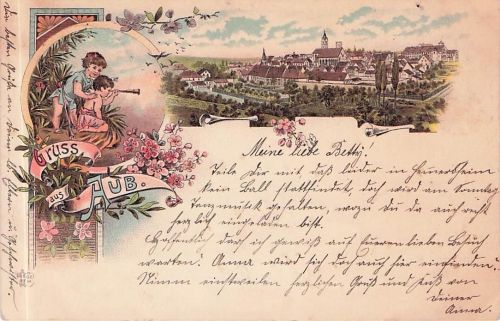 Gruss
aus
AUB.
Meine liebe Betty!
Teile Dir mit, daß leider in
kein Ball stattfindet, doch wird am Sonntag
Tanzmusik gehalten, wozu du da auch recht
herzlich eingeladen bist.
Hoffentlich darf ich gewiß auf Eueren lieben Besuch
warten. Anna wird sich doch auch hier einfinden.
Nimm einstweilen herzlichen Gruß und Kuß von
Deiner
Anna.